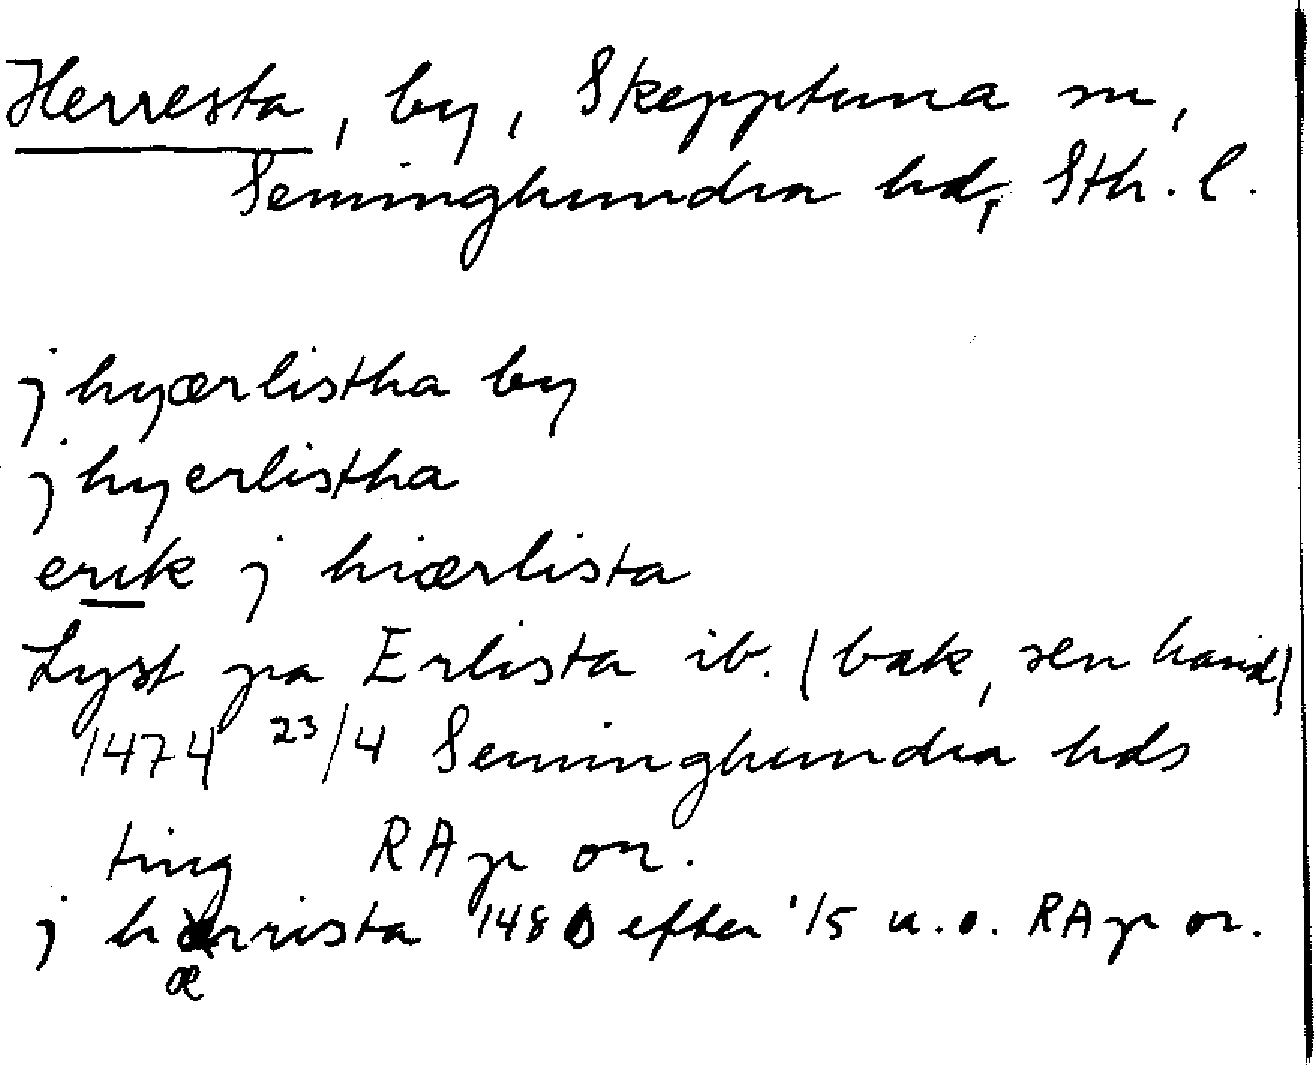 Herresta, by, Skepptuna sn,
Seminghundra hd, Sth. l.
j hyærlistha by
j hyerlistha
erik j hiærlista
Lyst pa Erlista ib. (bak, sen hand)
1474 23/4 Seminghundra hds
ting RAp or.
j hærrista 1480 efter 1/5 u.o. RAp or.
æ